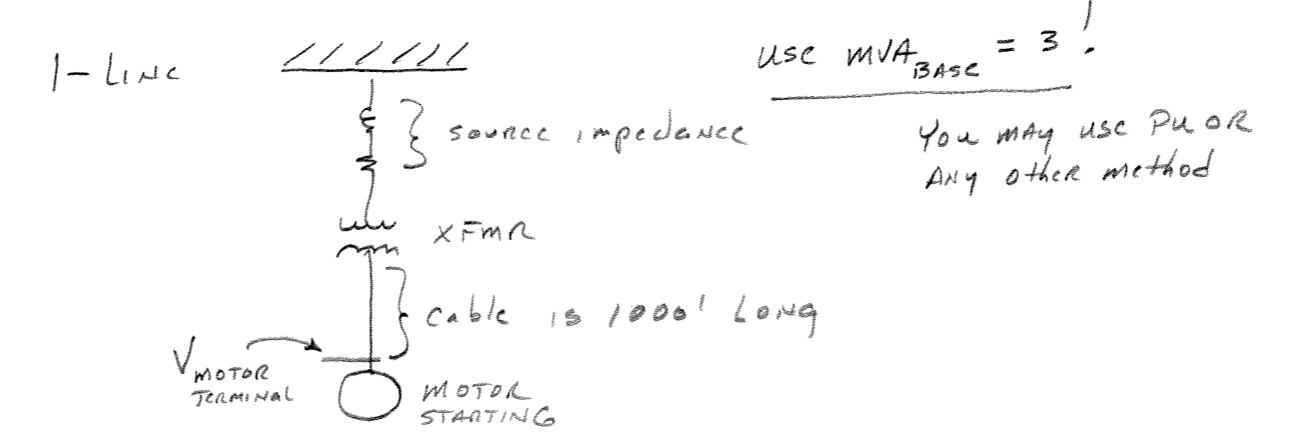 1-LINE
USE MVA BASE = 3 !
YOU MAY USE PU OR
ANY other method
source impedance
XFMR
cable is 1000' LONG
V MOTOR TERMINAL
MOTOR
STARTING